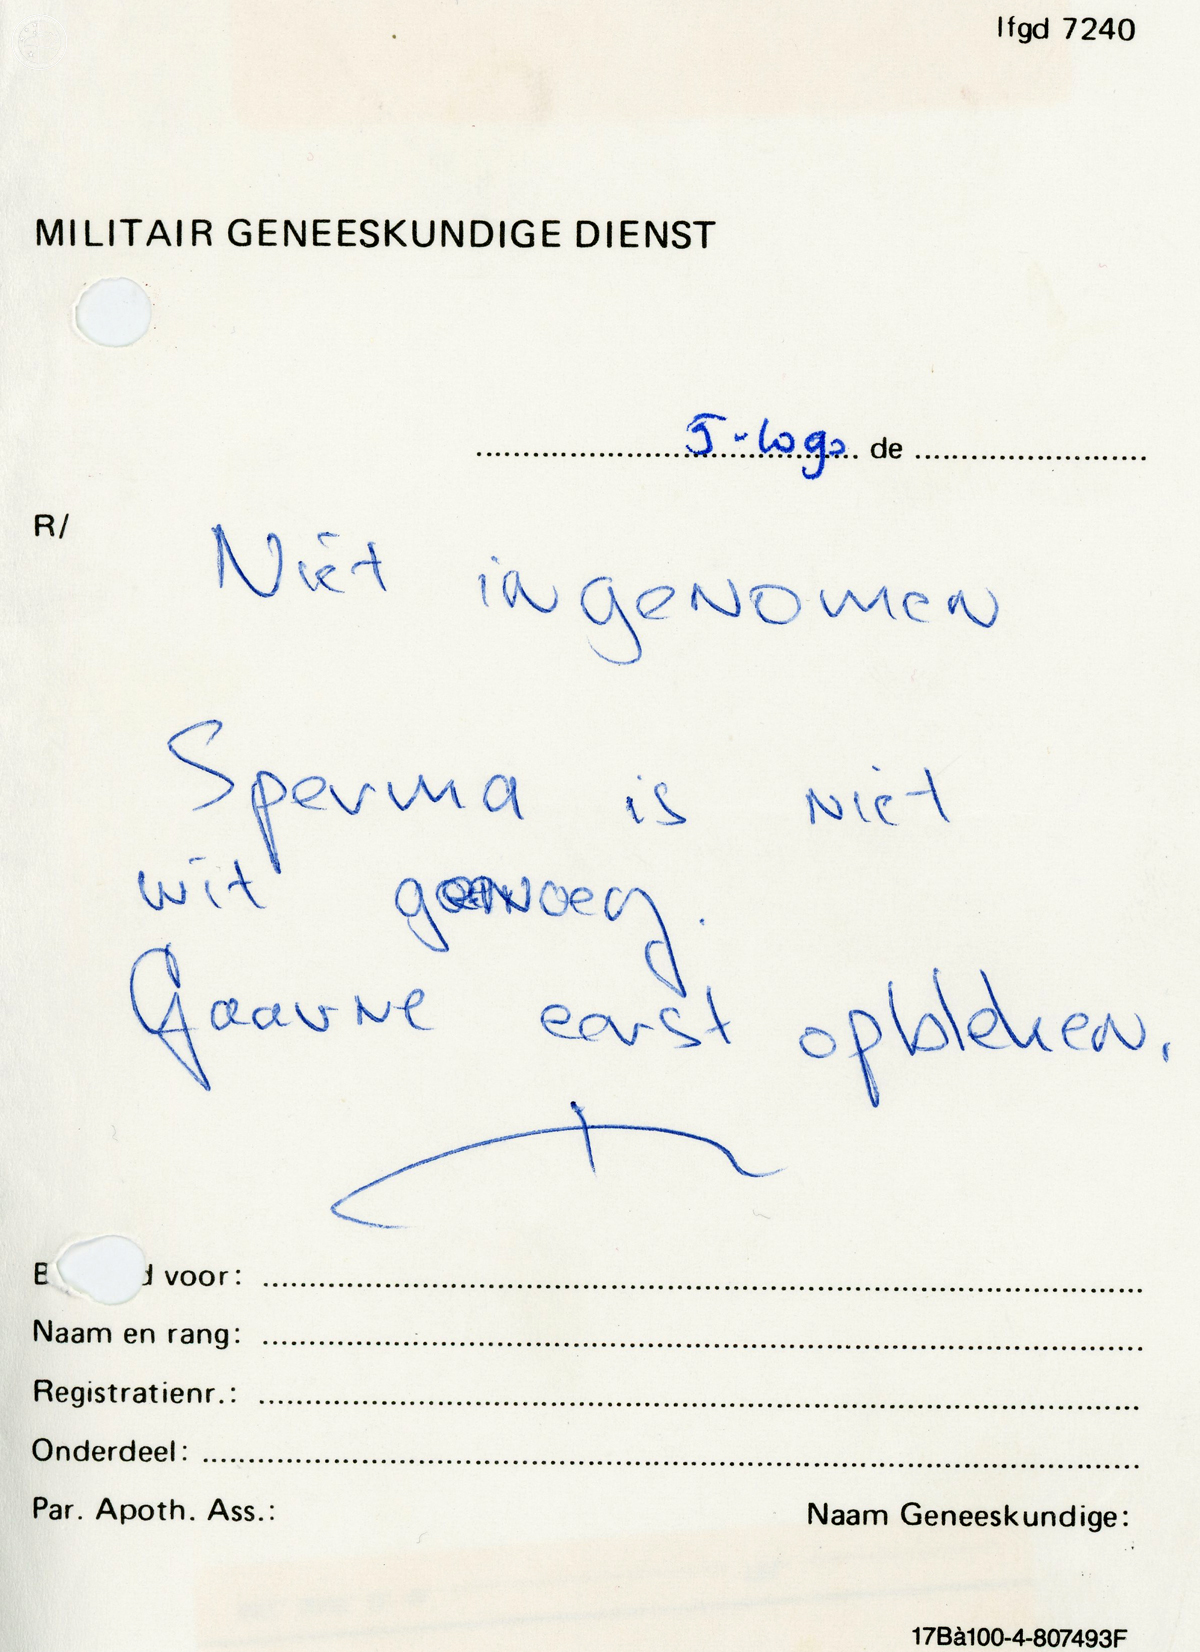 lfgd 7240
MILITAIR GENEESKUNDIGE DIENST
J-logo de
R/
Niet ingenomen
Sperma is niet
wit genoeg.
Gaarne eerst opbleken.
B d voor:
Naam en rang:
Registratienr.:
Onderdeel:
Par. Apoth. Ass.: Naam Geneeskundige:
17Bà100-4-807493F